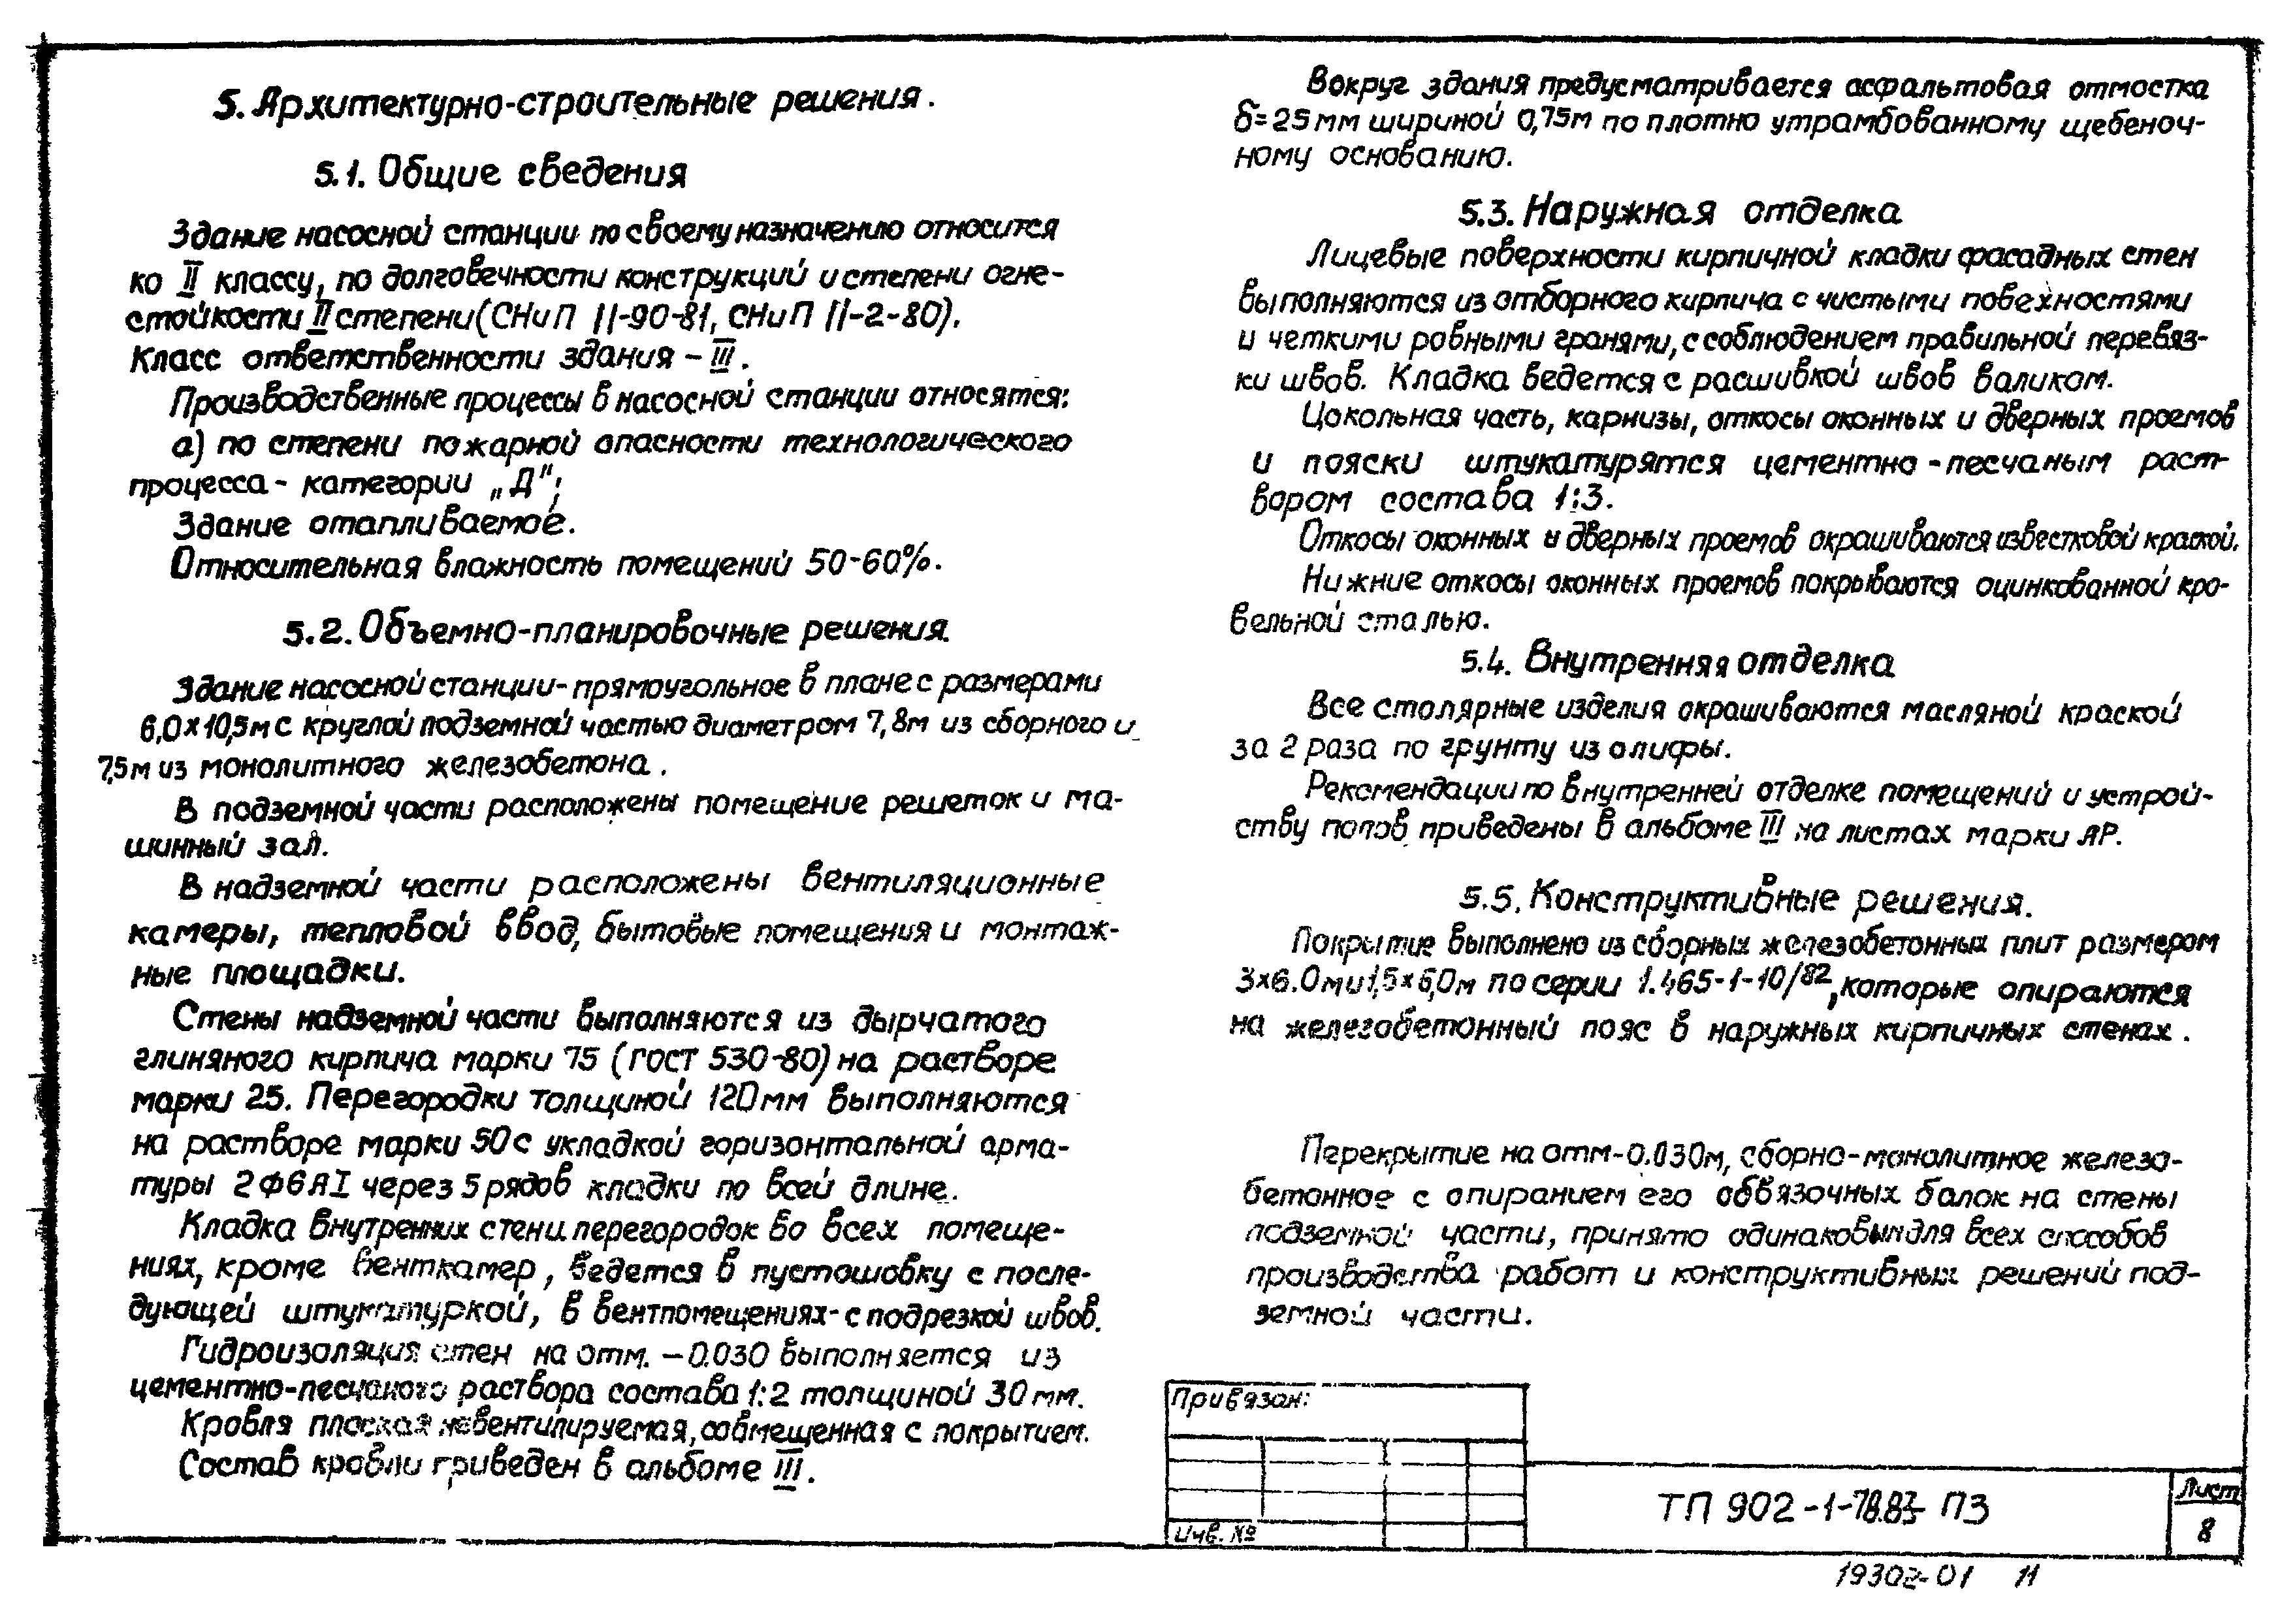 5. Архитектурно-строительные решения.
5.1. Общие сведения
Здание насосной станции по своему назначению относится
ко II классу, по долговечности конструкций и степени огне-
стойкости II степени (СНиП II-90-81, СНиП II-2-80).
Класс ответственности здания – III.
Производственные процессы в насосной станции относятся:
а) по степени пожарной опасности технологического
процесса - категории „Д";
Здание отапливаемое.
Относительная влажность помещений 50-60%.
5.2. Объемно-планировочные решения.
Здание насосной станции - прямоугольное в плане с размерами
6,0×10,5м с круглой подземной частью диаметром 7,8м из сборного и
7,5м из монолитного железобетона.
В подземной части расположены помещение решеток и ма-
шинный зал.
В надземной части расположены вентиляционные
камеры, тепловой ввод, бытовые помещения и монтаж-
ные площадки.
Стены надземной части выполняются из дырчатого
глиняного кирпича марки 75 (ГОСТ 530-80) на растворе
марки 25. Перегородки толщиной 120мм выполняются
на растворе марки 50 с укладкой горизонтальной арма-
туры 2Ф6АI через 5 рядов кладки по всей длине.
Кладка внутренних стен и перегородок во всех помеще-
ниях, кроме венткамер, ведется в пустошовку с после-
дующей штукатуркой, в вентпомещениях - с подрезкой швов.
Гидроизоляция стен на отм. –0.030 выполняется из
цементно-песчаного раствора состава 1:2 толщиной 30мм.
Кровля плоская невентилируемая, совмещенная с покрытием.
Состав кровли приведен в альбоме III.
Вокруг здания предусматривается асфальтовая отмостка
δ=25мм шириной 0,75м по плотно утрамбованному щебеноч-
ному основанию.
5.3. Наружная отделка
Лицевые поверхности кирпичной кладки фасадных стен
выполняются из отборного кирпича с чистыми повехностями
и четкими ровными гранями, с соблюдением правильной перевяз-
ки швов. Кладка ведется с расшивкой швов валиком.
Цокольная часть, карнизы, откосы оконных и дверных проемов
и пояски штукатурятся цементно-песчаным раст-
вором состава 1:3.
Откосы оконных и дверных проемов окрашиваются известковой краской.
Нижние откосы оконных проемов покрываются оцинкованной кро-
вельной сталью.
5.4. Внутренняя отделка
Все столярные изделия окрашиваются масляной краской
за 2 раза по грунту из олифы.
Рекомендации по внутренней отделке помещений и устрой-
ству полов приведены в альбоме III на листах марки АР.
5.5. Конструктивные решения.
Покрытие выполнено из сборных железобетонных плит размером
3×6.0м и 1,5×6,0м по серии 1.465-1-10/82, которые опираются
на железобетонный пояс в наружных кирпичных стенах.
Перекрытие на отм-0.030м, сборно-монолитное железо-
бетонное с опиранием его обвязочных балок на стены
подземной части, принято одинаковым для всех способов
производства работ и конструктивных решений под-
земной части.
Привязан:
Инв. №
ТП 902-1-78.83 ПЗ
Лист
8
19302-01 11